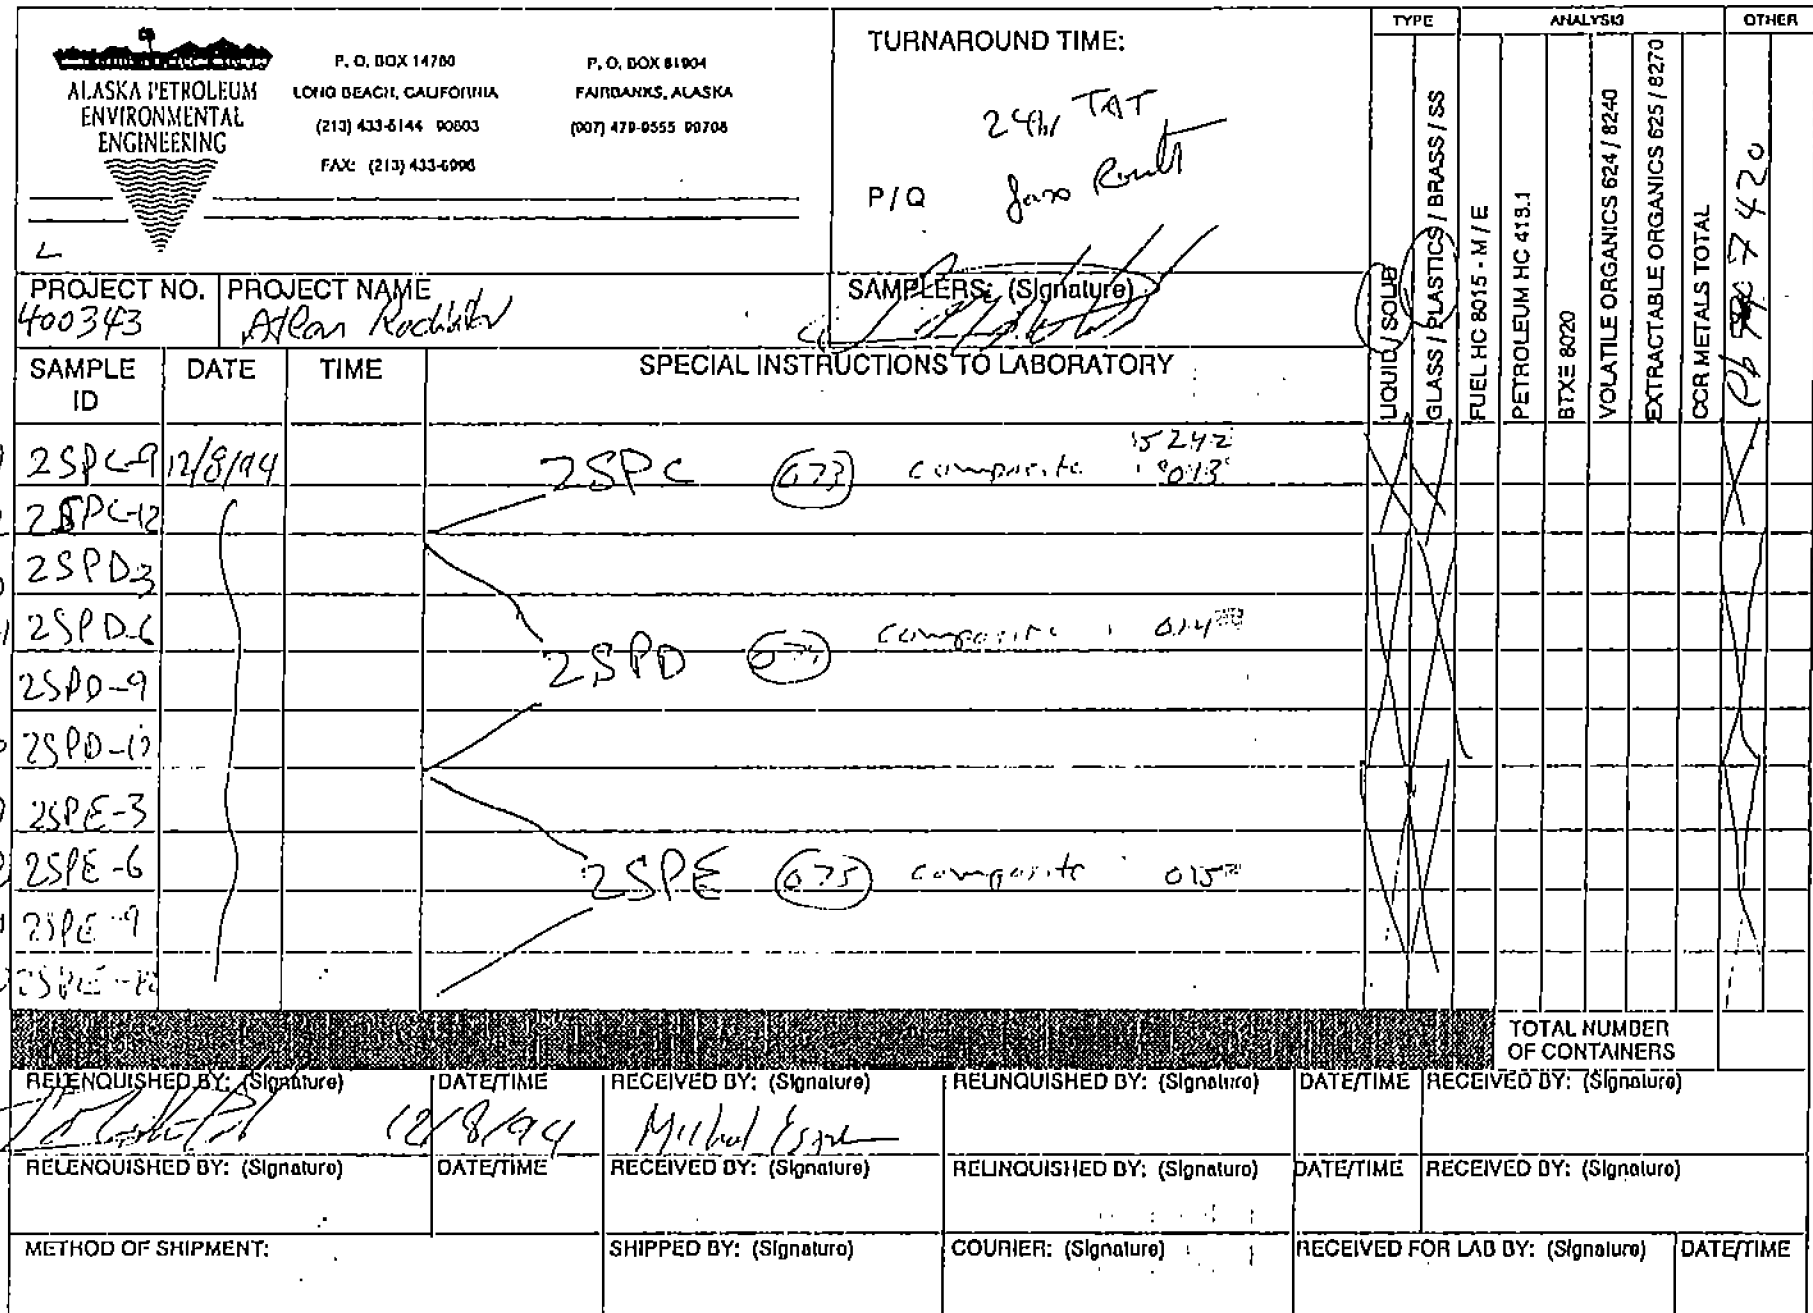 ALASKA PETROLEUM
ENVIRONMENTAL
ENGINEERING
P. O. BOX 14760
LONG BEACH, CALIFORNIA
(213) 433-6144 90803
FAX: (213) 433-6996
P. O. BOX 81904
FAIRBANKS, ALASKA
(907) 479-0555 99708
TURNAROUND TIME:
24hr TAT
P / Q
TYPE
ANALYSIS
OTHER
LIQUID / SOLID
GLASS / PLASTICS / BRASS / SS
FUEL HC 8015 - M / E
PETROLEUM HC 418.1
BTXE 8020
VOLATILE ORGANICS 624 / 8240
EXTRACTABLE ORGANICS 625 / 8270
CCR METALS TOTAL
Pb 7420
PROJECT NO.
400343
PROJECT NAME
SAMPLERS: (Signature)
SAMPLE ID
DATE
TIME
SPECIAL INSTRUCTIONS TO LABORATORY
2SPC-9 12/8/94 2SPC 673 composite 15242
013
2SPC-12
2SPD-3
2SPD-6 composite 014
2SPD 674
2SPD-9
2SPD-12
2SPE-3
2SPE-6 2SPE 675 composite 015
2SPE-9
2SPE-12
TOTAL NUMBER
OF CONTAINERS
RELENQUISHED BY: (Signature) DATE/TIME RECEIVED BY: (Signature) RELINQUISHED BY: (Signature) DATE/TIME RECEIVED BY: (Signature)
12/8/94
RELENQUISHED BY: (Signature) DATE/TIME RECEIVED BY: (Signature) RELINQUISHED BY: (Signature) DATE/TIME RECEIVED BY: (Signature)
METHOD OF SHIPMENT: SHIPPED BY: (Signature) COURIER: (Signature) RECEIVED FOR LAB BY: (Signature) DATE/TIME